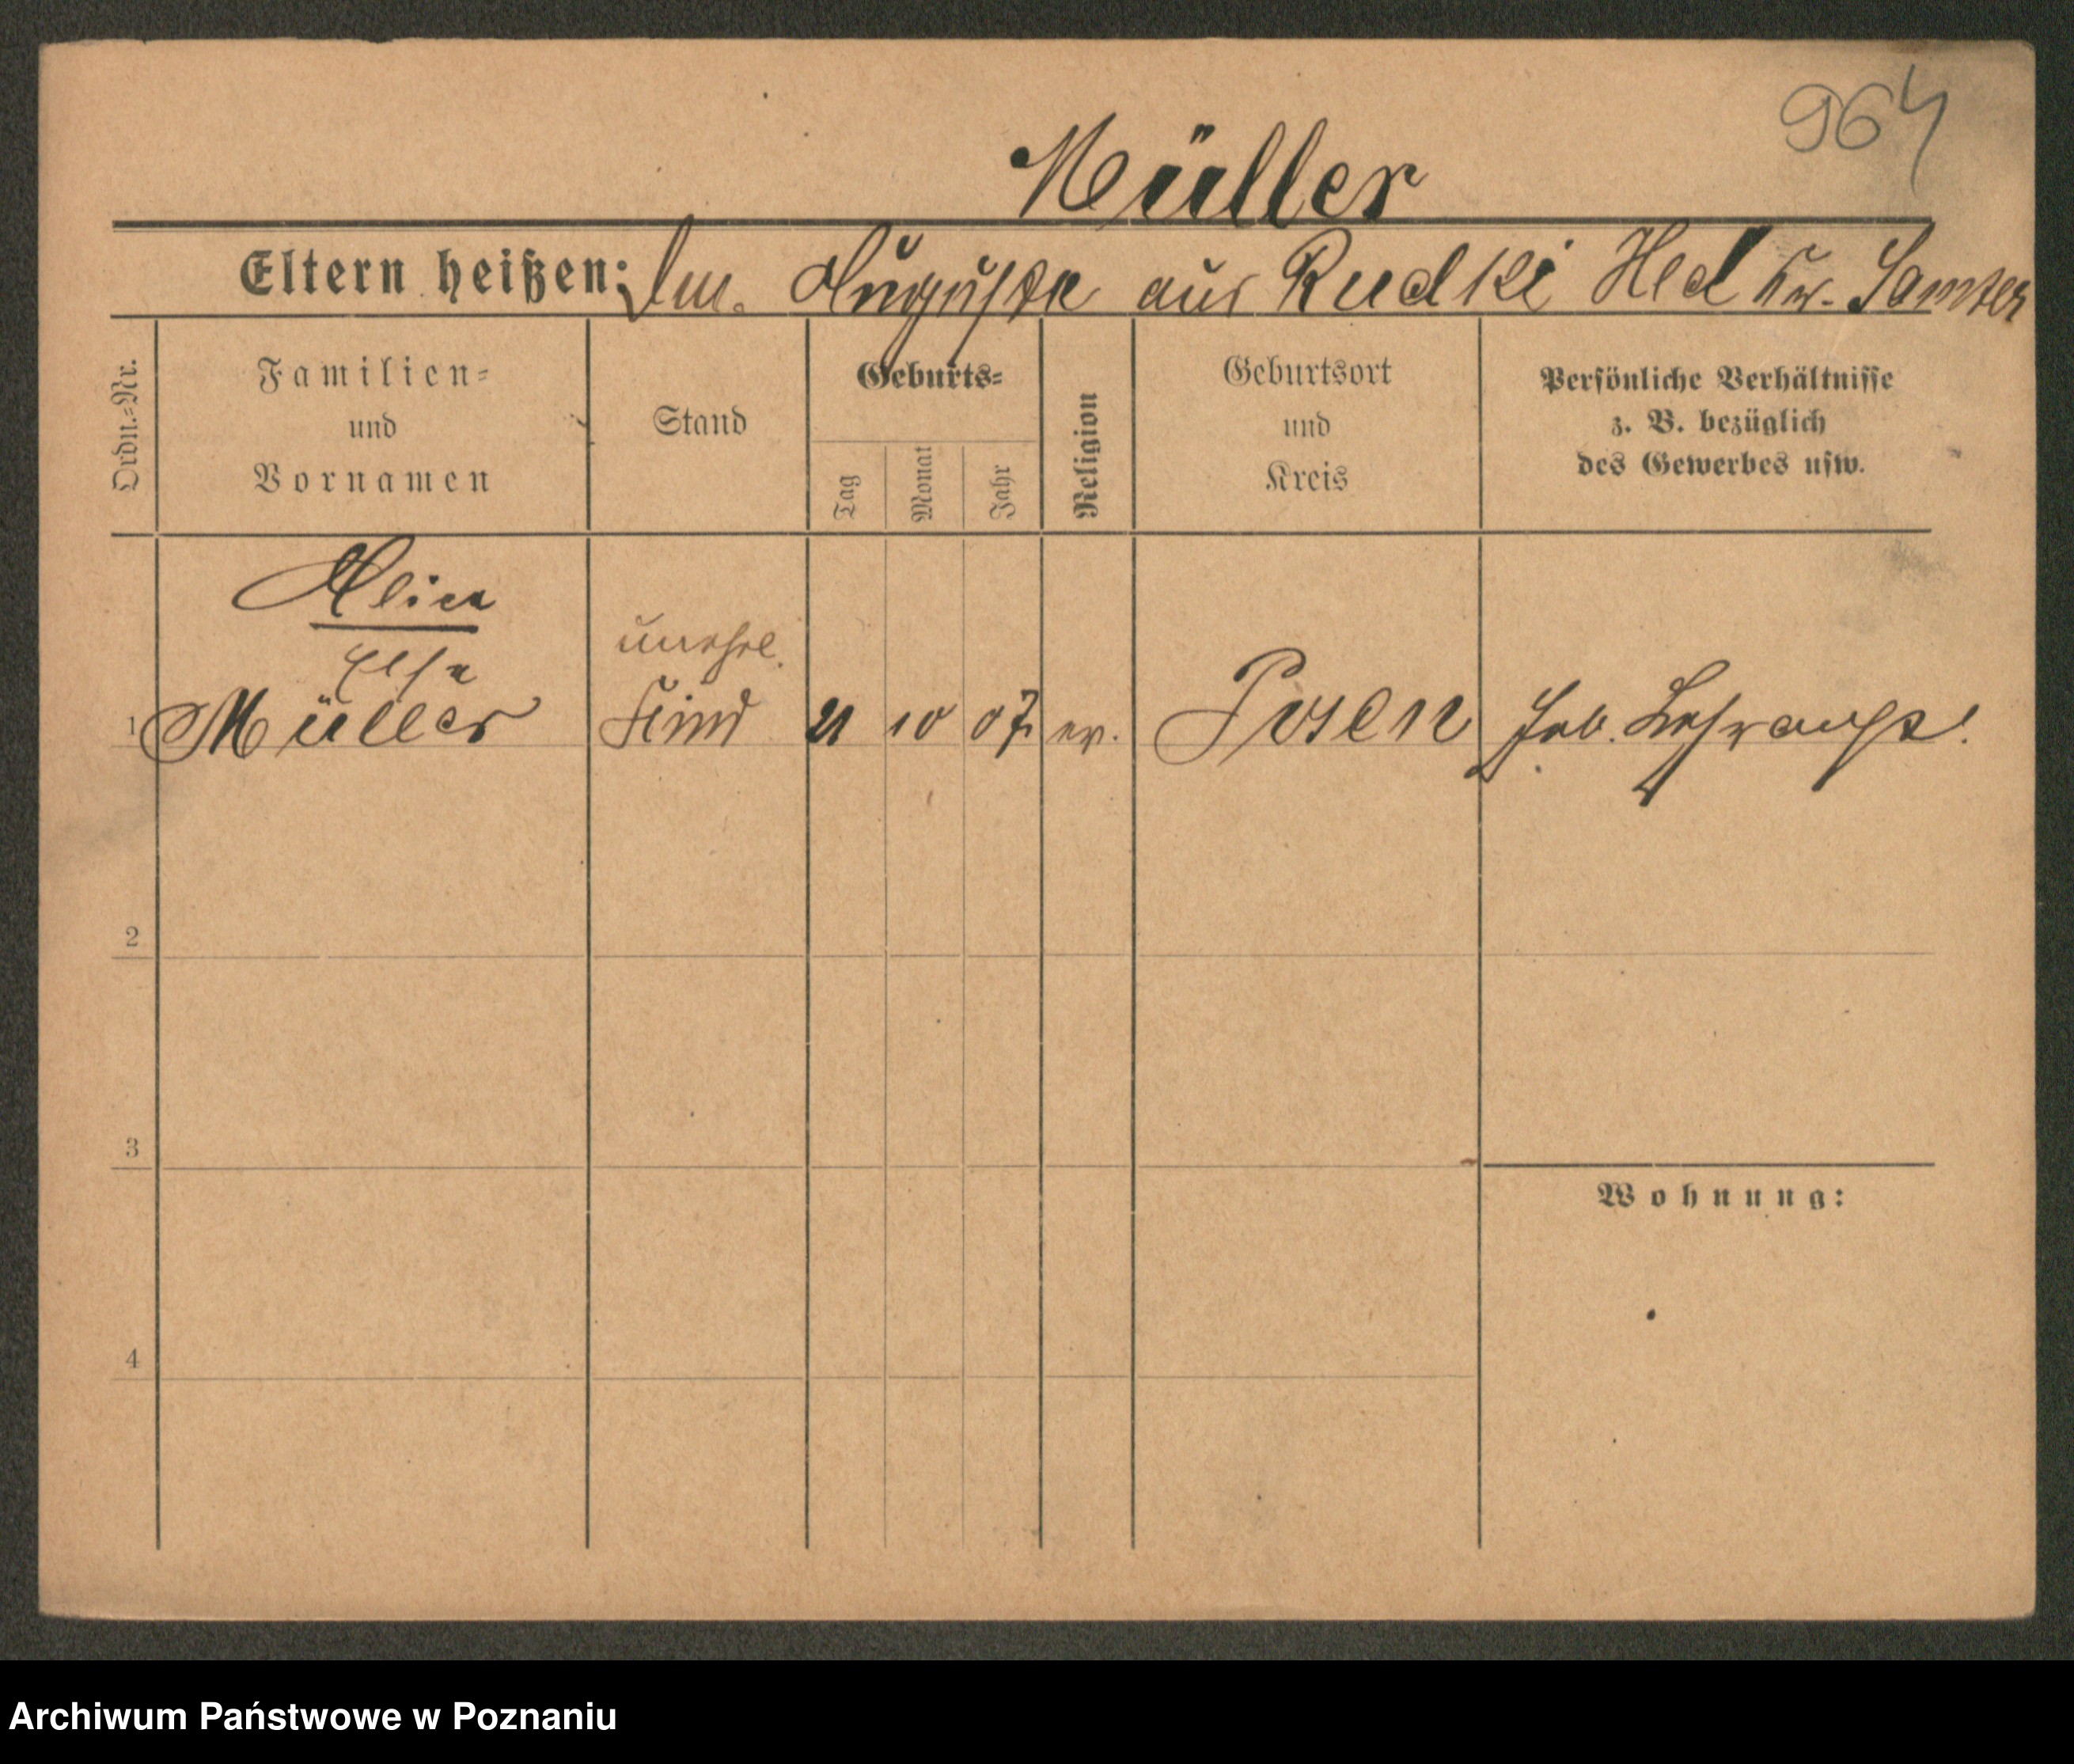 964
Müller
Eltern heißen: Auguste aus Rudki Hld Kr. Samter
Ordn.=Nr.
Familien=
und
Vornamen
Stand
Geburts=
Tag
Monat
Jahr
Religion
Geburtsort
und
Kreis
Persönliche Verhältnisse
z. B. bezüglich
des Gewerbes usw.
Elsa
unehel.
1 Müller Kind 21 10 07 ev. Posen Geb.
2
3
Wohnung:
4
Archiwum Państwowe w Poznaniu